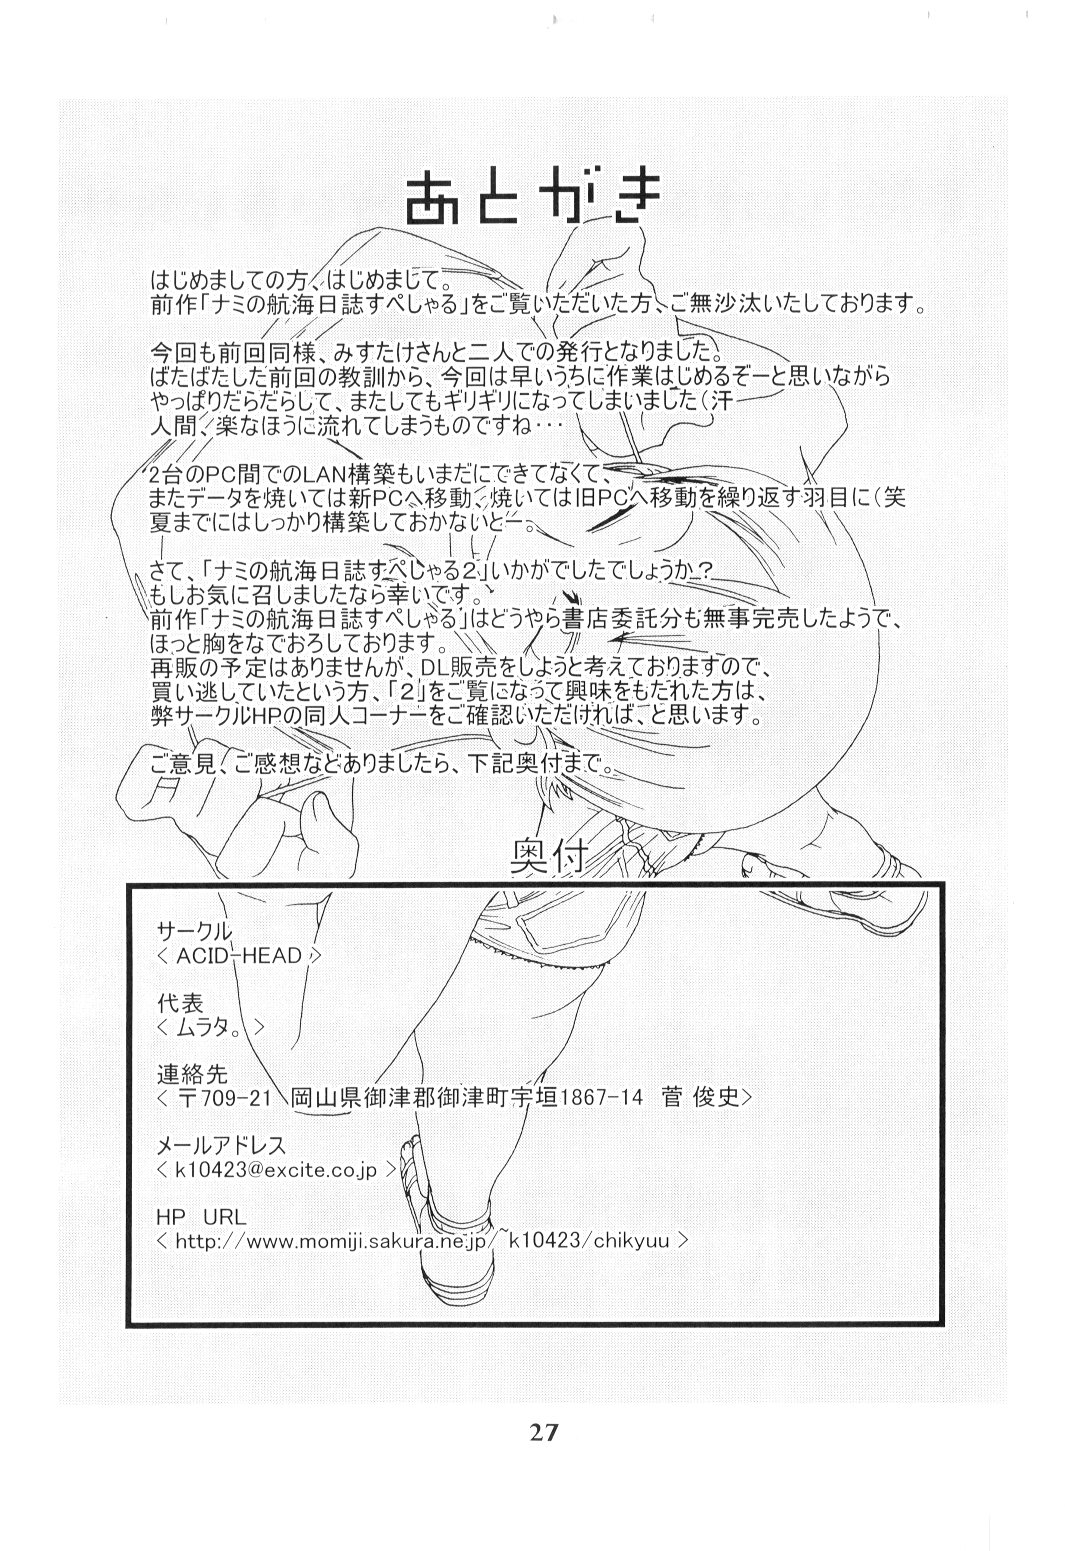 あとがき
はじめましての方、はじめまして。
前作「ナミの航海日誌すぺしゃる」をご覧いただいた方、ご無沙汰いたしております。
今回も前回同様、みすたけさんと二人での発行となりました。
ばたばたした前回の教訓から、今回は早いうちに作業はじめるぞーと思いながら
やっぱりだらだらして、またしてもギリギリになってしまいました（汗
人間、楽なほうに流れてしまうものですね・・・
２台のPC間でのLAN構築もいまだにできてなくて、
またデータを焼いては新PCへ移動、焼いては旧PCへ移動を繰り返す羽目に（笑
夏までにはしっかり構築しておかないとー。
さて、「ナミの航海日誌すぺしゃる２」いかがでしたでしょうか？
もしお気に召しましたなら幸いです。
前作「ナミの航海日誌すぺしゃる」はどうやら書店委託分も無事完売したようで、
ほっと胸をなでおろしております。
再販の予定はありませんが、DL販売をしようと考えておりますので、
買い逃していたという方、「２」をご覧になって興味をもたれた方は、
弊サークルHPの同人コーナーをご確認いただければ、と思います。
ご意見、ご感想などありましたら、下記奥付まで。
奥付
サークル
< ACID-HEAD >
代表
< ムラタ。 >
連絡先
< 〒709-21 岡山県御津郡御津町宇垣1867-14 菅 俊史>
メールアドレス
< k10423@excite.co.jp >
HP URL
< http://www.momiji.sakura.ne.jp/~k10423/chikyuu >
27